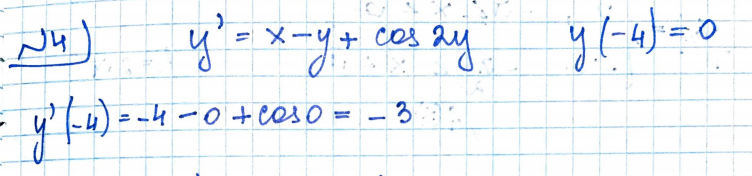 №4) y' = x - y + cos 2y y(-4) = 0
y'(-4) = -4 - 0 + cos 0 = -3